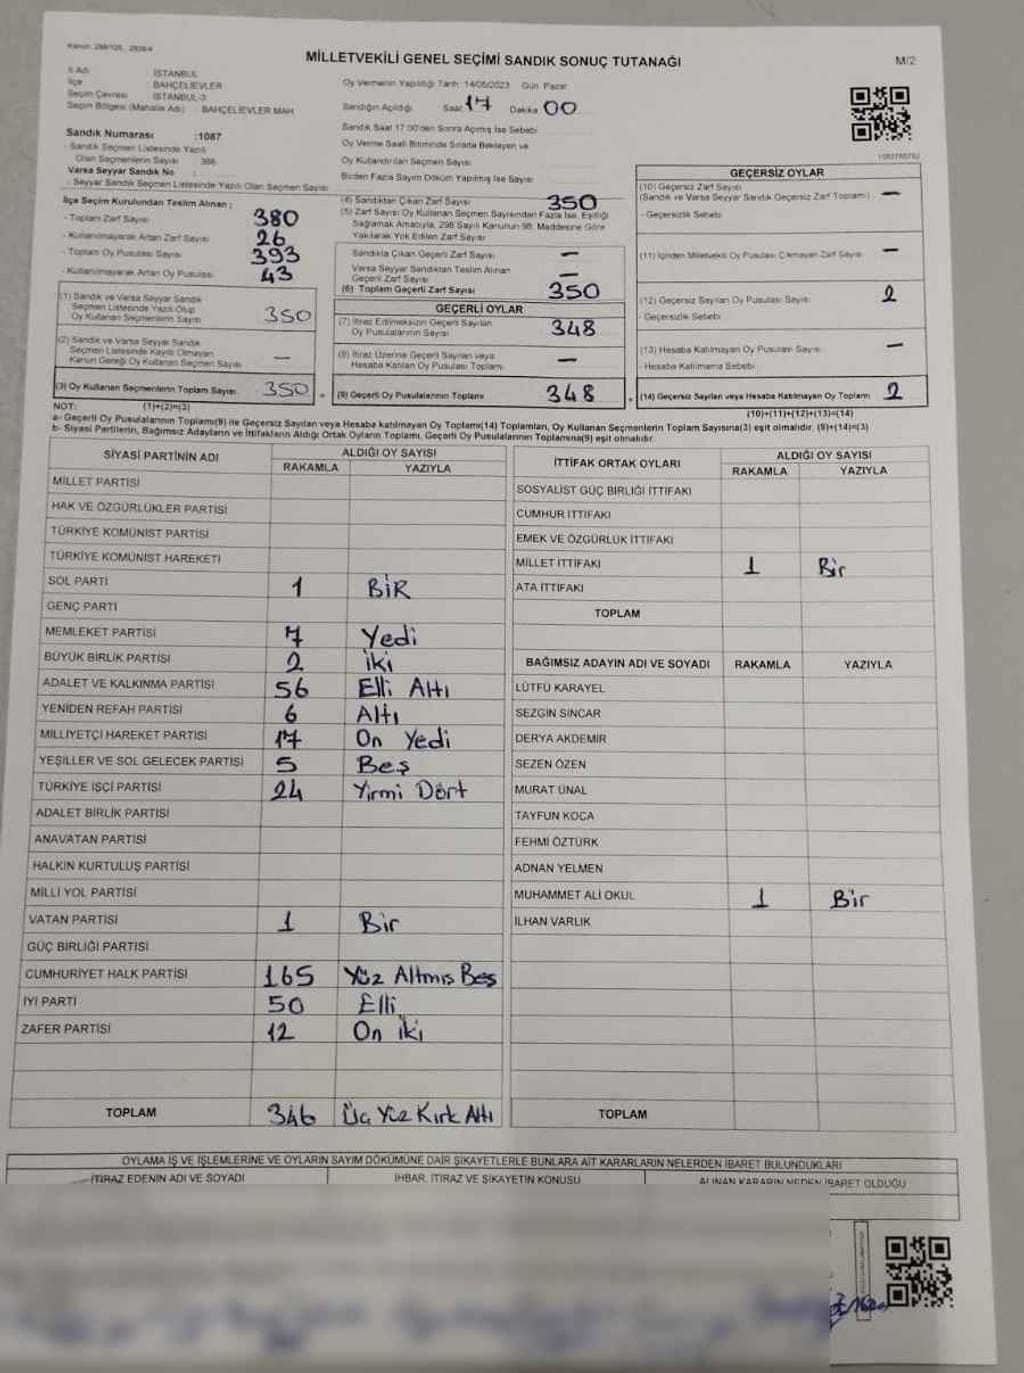 Kanun: 298/105, 2839/4
MİLLETVEKİLİ GENEL SEÇİMİ SANDIK SONUÇ TUTANAĞI
M/2
İl Adı : İSTANBUL
İlçe : BAHÇELİEVLER
Seçim Çevresi : İSTANBUL-3
Seçim Bölgesi (Mahalle Adı) : BAHÇELİEVLER MAH
Oy Vermenin Yapıldığı Tarih: 14/05/2023 Gün: Pazar
Sandığın Açıldığı Saat 17 Dakika 00
Sandık Saat 17.00'den Sonra Açılmış İse Sebebi
Oy Verme Saati Bitiminde Sırada Bekleyen ve
Oy Kullandırılan Seçmen Sayısı
Birden Fazla Sayım Döküm Yapılmış İse Sayısı
Sandık Numarası :1087
- Sandık Seçmen Listesinde Yazılı
Olan Seçmenlerin Sayısı
Varsa Seyyar Sandık No :
- Seyyar Sandık Seçmen Listesinde Yazılı Olan Seçmen Sayısı
İlçe Seçim Kurulundan Teslim Alınan ;
- Toplam Zarf Sayısı 380
- Kullanılmayarak Artan Zarf Sayısı 26
- Toplam Oy Pusulası Sayısı 393
- Kullanılmayarak Artan Oy Pusulası 43
(1) Sandık ve Varsa Seyyar Sandık
Seçmen Listesinde Yazılı Olup
Oy Kullanan Seçmenlerin Sayısı 350
(2) Sandık ve Varsa Seyyar Sandık
Seçmen Listesinde Kayıtlı Olmayan
Kanun Gereği Oy Kullanan Seçmen Sayısı —
(3) Oy Kullanan Seçmenlerin Toplam Sayısı 350
(4) Sandıktan Çıkan Zarf Sayısı 350
(5) Zarf Sayısı Oy Kullanan Seçmen Sayısından Fazla İse, Eşitliği
Sağlamak Amacıyla, 298 Sayılı Kanunun 98. Maddesine Göre
Yakılarak Yok Edilen Zarf Sayısı
Sandıkta Çıkan Geçerli Zarf Sayısı —
Varsa Seyyar Sandıktan Teslim Alınan
Geçerli Zarf Sayısı —
(6) Toplam Geçerli Zarf Sayısı 350
GEÇERLİ OYLAR
(7) İtiraz Edilmeksizin Geçerli Sayılan
Oy Pusulalarının Sayısı 348
(8) İtiraz Üzerine Geçerli Sayılan veya
Hesaba Katılan Oy Pusulası Toplamı —
(9) Geçerli Oy Pusulalarının Toplamı 348
GEÇERSİZ OYLAR
(10) Geçersiz Zarf Sayısı
(Sandık ve Varsa Seyyar Sandık Geçersiz Zarf Toplamı) —
- Geçersizlik Sebebi
(11) İçinden Milletvekili Oy Pusulası Çıkmayan Zarf Sayısı —
(12) Geçersiz Sayılan Oy Pusulası Sayısı 2
- Geçersizlik Sebebi
(13) Hesaba Katılmayan Oy Pusulası Sayısı —
- Hesaba Katılmama Sebebi
(14) Geçersiz Sayılan veya Hesaba Katılmayan Oy Toplamı 2
NOT: (1)+(2)=(3)
(10)+(11)+(12)+(13)=(14)
a- Geçerli Oy Pusulalarının Toplamı(9) ile Geçersiz Sayılan veya Hesaba katılmayan Oy Toplamı(14) Toplamları, Oy Kullanan Seçmenlerin Toplam Sayısına(3) eşit olmalıdır. (9)+(14)=(3)
b- Siyasi Partilerin, Bağımsız Adayların ve İttifakların Aldığı Ortak Oyların Toplamı, Geçerli Oy Pusulalarının Toplamına(9) eşit olmalıdır.
SİYASİ PARTİNİN ADI ALDIĞI OY SAYISI
RAKAMLA YAZIYLA
MİLLET PARTİSİ
HAK VE ÖZGÜRLÜKLER PARTİSİ
TÜRKİYE KOMÜNİST PARTİSİ
TÜRKİYE KOMÜNİST HAREKETİ
SOL PARTİ 1 BİR
GENÇ PARTİ
MEMLEKET PARTİSİ 7 Yedi
BÜYÜK BİRLİK PARTİSİ 2 iki
ADALET VE KALKINMA PARTİSİ 56 Elli Altı
YENİDEN REFAH PARTİSİ 6 Altı
MİLLİYETÇİ HAREKET PARTİSİ 17 On Yedi
YEŞİLLER VE SOL GELECEK PARTİSİ 5 Beş
TÜRKİYE İŞÇİ PARTİSİ 24 Yirmi Dört
ADALET BİRLİK PARTİSİ
ANAVATAN PARTİSİ
HALKIN KURTULUŞ PARTİSİ
MİLLİ YOL PARTİSİ
VATAN PARTİSİ 1 Bir
GÜÇ BİRLİĞİ PARTİSİ
CUMHURİYET HALK PARTİSİ 165 Yüz Altmış Beş
İYİ PARTİ 50 Elli
ZAFER PARTİSİ 12 On iki
TOPLAM 346 Üç Yüz Kırk Altı
İTTİFAK ORTAK OYLARI ALDIĞI OY SAYISI
RAKAMLA YAZIYLA
SOSYALİST GÜÇ BİRLİĞİ İTTİFAKI
CUMHUR İTTİFAKI
EMEK VE ÖZGÜRLÜK İTTİFAKI
MİLLET İTTİFAKI 1 Bir
ATA İTTİFAKI
TOPLAM
BAĞIMSIZ ADAYIN ADI VE SOYADI RAKAMLA YAZIYLA
LÜTFÜ KARAYEL
SEZGİN SİNCAR
DERYA AKDEMİR
SEZEN ÖZEN
MURAT ÜNAL
TAYFUN KOCA
FEHMİ ÖZTÜRK
ADNAN YELMEN
MUHAMMET ALİ OKUL 1 Bir
İLHAN VARLIK
TOPLAM
OYLAMA İŞ VE İŞLEMLERİNE VE OYLARIN SAYIM DÖKÜMÜNE DAİR ŞİKAYETLERLE BUNLARA AİT KARARLARIN NELERDEN İBARET BULUNDUKLARI
İTİRAZ EDENİN ADI VE SOYADI İHBAR, İTİRAZ VE ŞİKAYETİN KONUSU ALINAN KARARIN NEDEN İBARET OLDUĞU